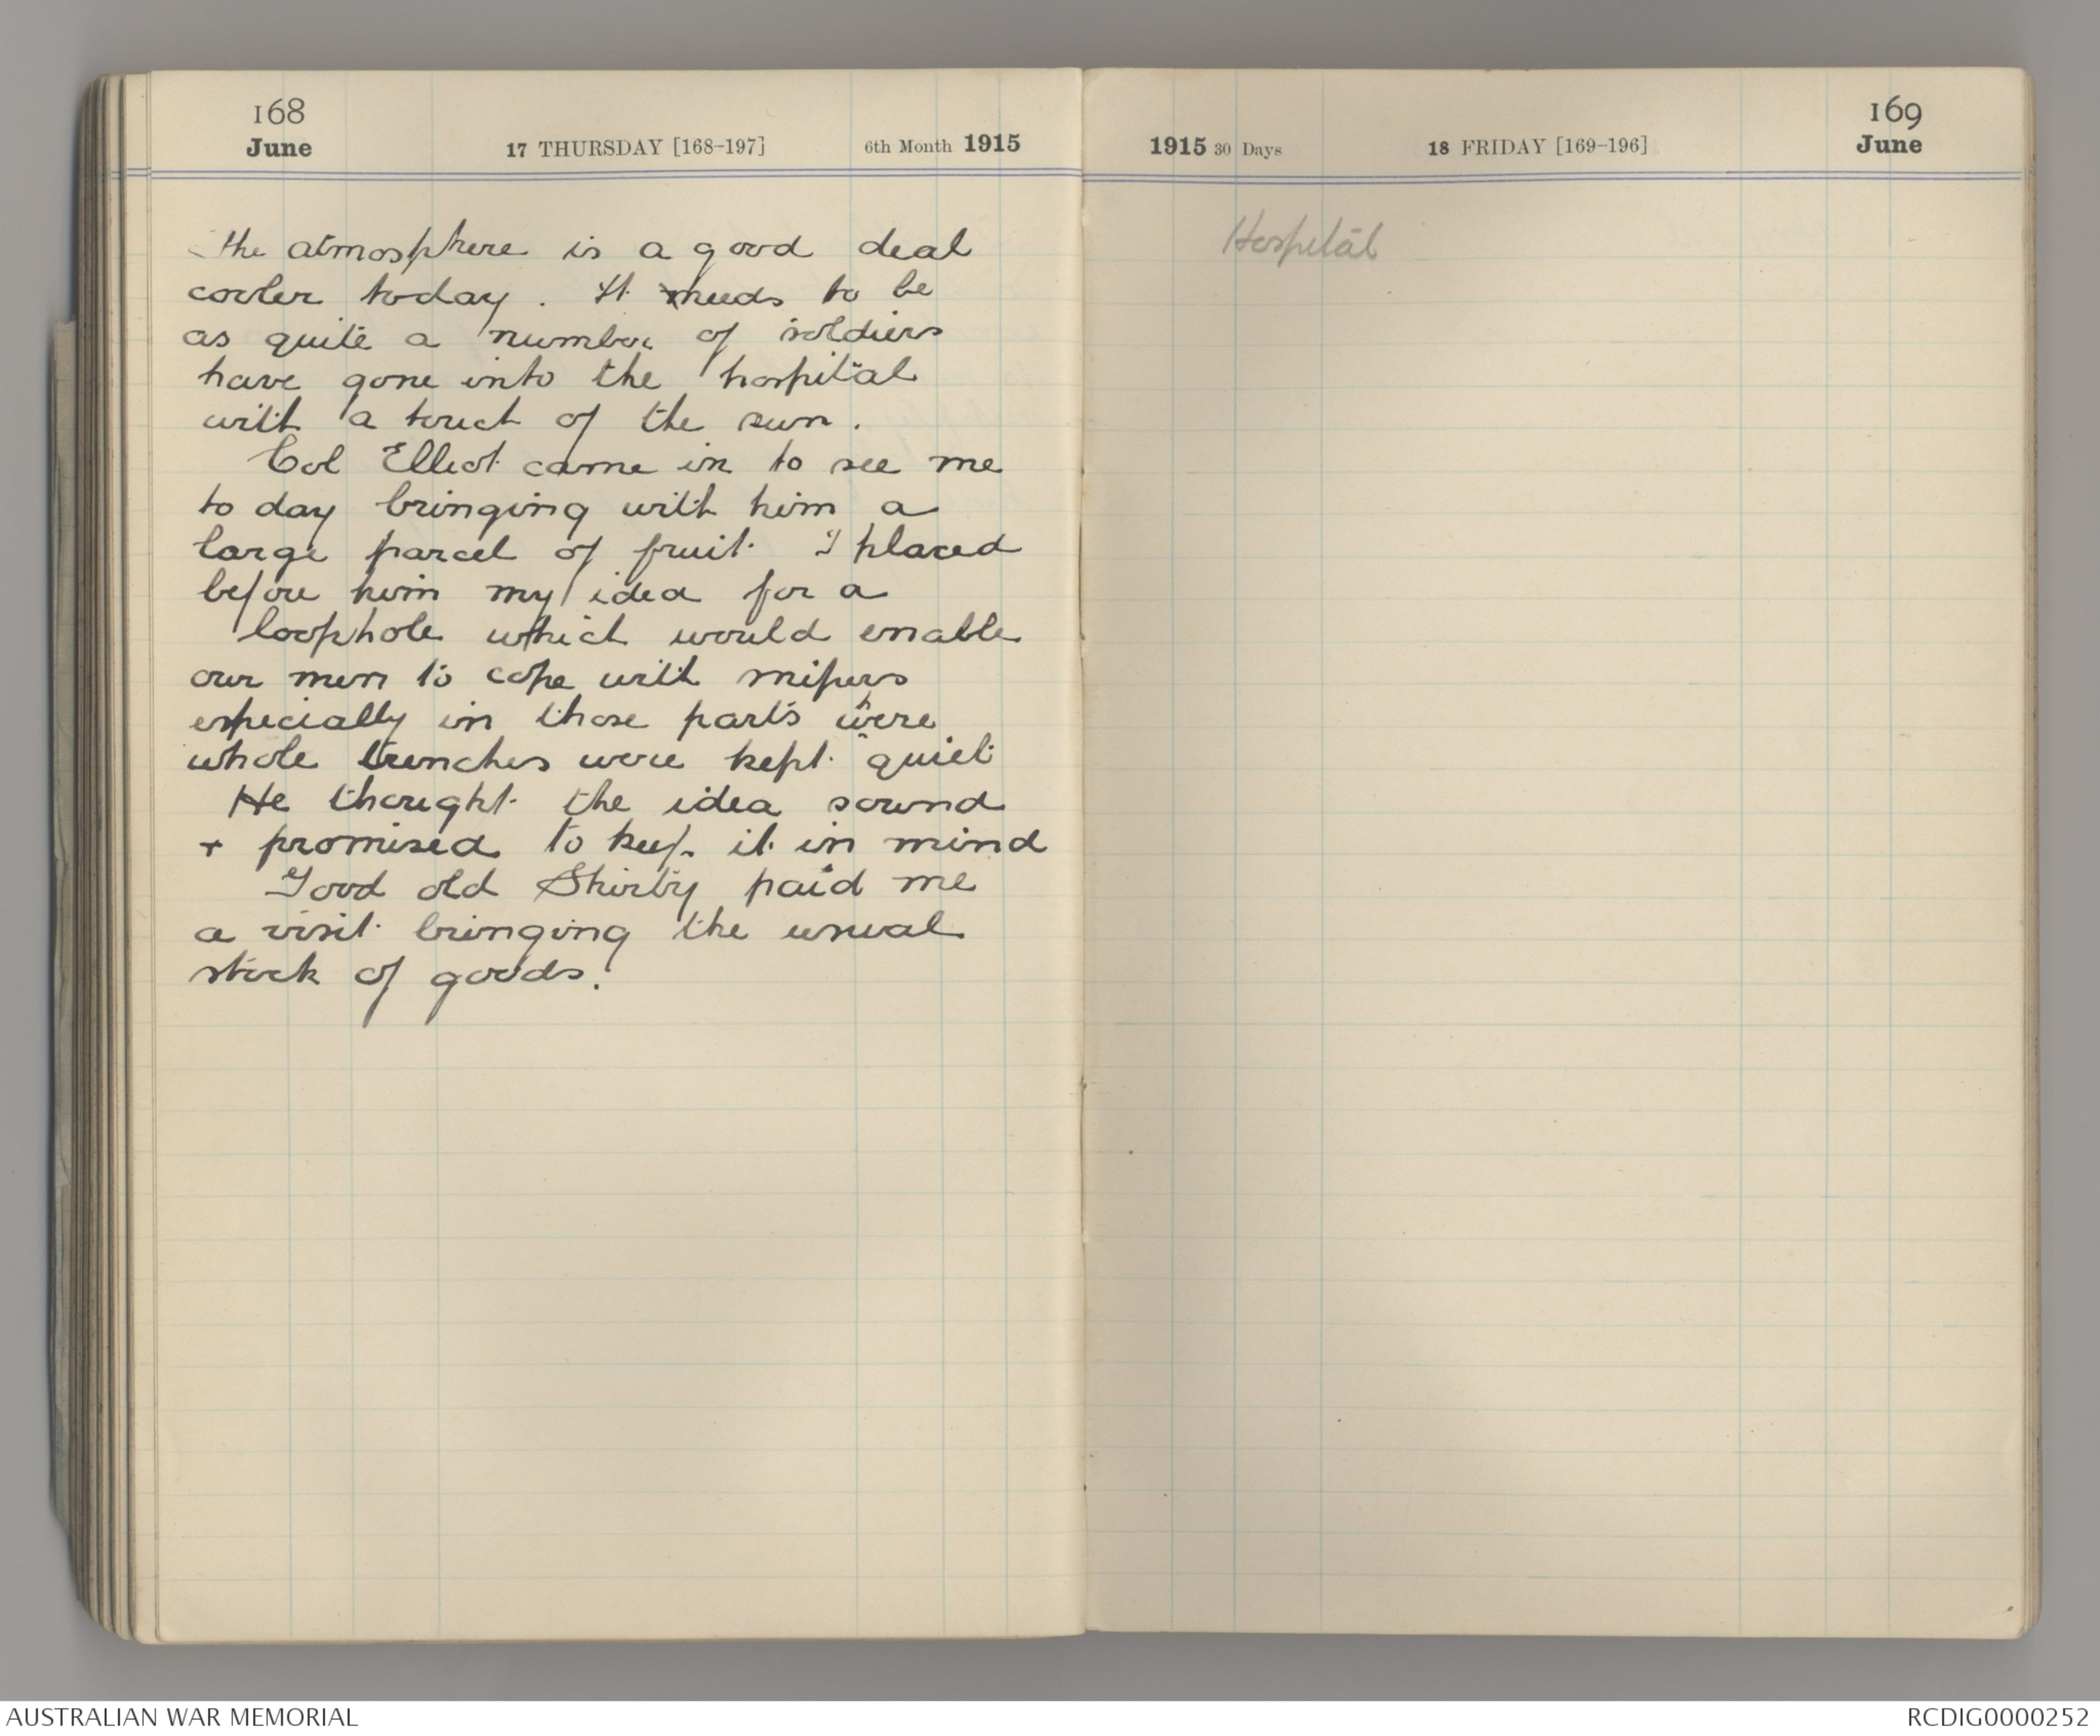 168
June
17 THURSDAY [168-197]
6th Month 1915
the atmosphere is a good deal
cooler today. It needs to be
as quite a number of soldiers
have gone into the hospital
with a touch of the sun.
Col Elliot came in to see me
to day bringing with him a
large parcel of fruit. I placed
before him my idea for a
loophole which would enable
our men to cope with snipers
especially in those parts where
whole trenches were kept quiet
He thought the idea sound
+ promised to keep it in mind
Good old Shirtby paid me
a visit bringing the usual
stock of goods.
1915 30 Days
18 FRIDAY [169-196]
169
June
Hospital
AUSTRALIAN WAR MEMORIAL
RCDIG0000252